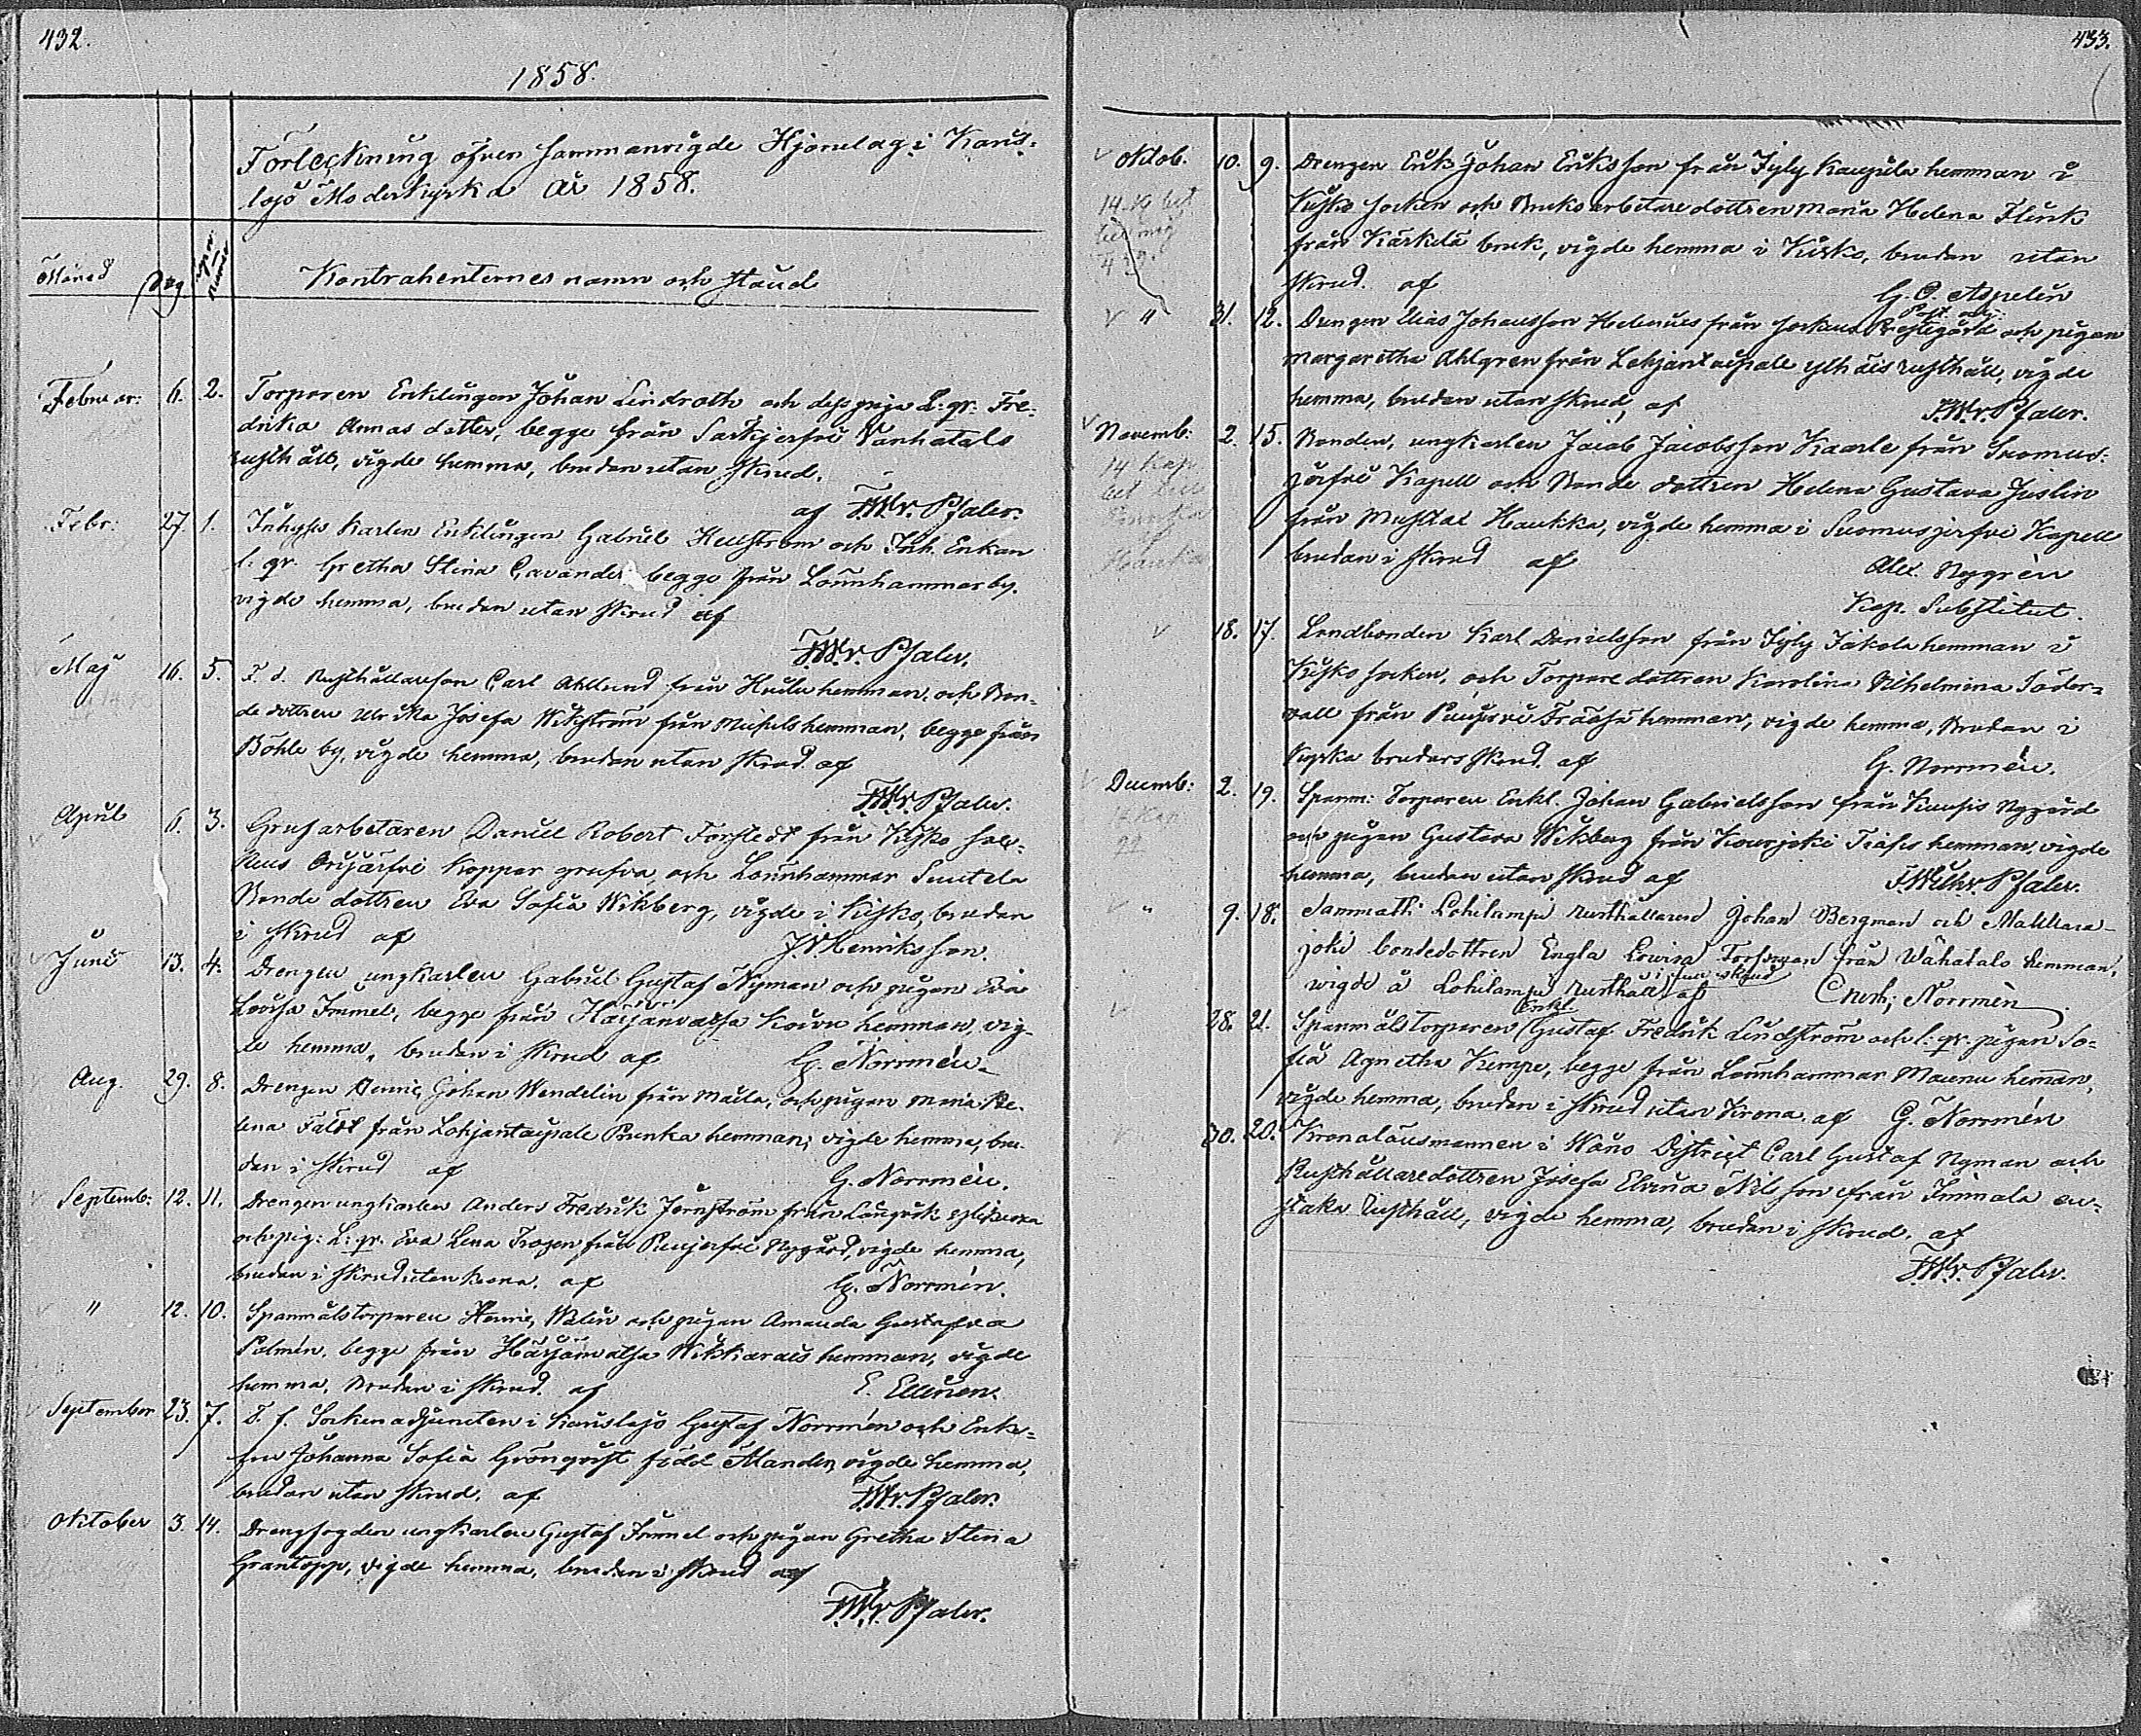 432.
1858.
Förteckning öfver sammanvigde Hjonelag i Karis-
lojo Moderkyrka år 1858.
Månad Dag Kontrahenternes namn och stånd
Februar: 6. 2. Torparen Enklingen Johan Lindroth och dess piga L: qv: Fre-
drika Annasdotter, begge från Särkjerfvi Vanhatalo
rusthåll, vigde hemma, bruden utan skrud.
af F.W.v. Pfaler.
Febr: 27. 1. Inhyses Karlen Enklingen Gabriel Hellström och Inh. Enkan
l: qv. Gretha Stina Cavander begge från Lönnhammar by.
vigde hemma, bruden utan skrud af
F.W.v. Pfaler.
Maj 16. 5. F. d. Rusthållareson Carl Ahllund från Hemman och Bon-
de dottren Ulrika Josefa Wikström från Michels hemman, begge från
Böhle by, vigde hemma, bruden utan skrud. af
F.W.v. Pfaler.
April 6. 3. Grufarbetaren Daniel Robert Forstedt från Kisko sock-
nus Orijärfvi koppar grufva, och Lönnhammar Suutela
Bonde dottren Eva Sofia Wikberg, vigde i Kisko, bruden
i skrud af J. V. Henriksson.
Juni 13. 4. Drengen ungkarlen Gabriel Gustaf Nyman och pigan Eva
Lovisa Immel, begge från Härjänvatsa Koivu hemman, vig-
de hemma, bruden i skrud af G. Norrmén.
Aug. 29. 8. Drengen Henric Johan Wendelin från Maila, och pigan Maria He-
lena Fält från Lohjantaipale Prunka hemman; vigde hemma, bru-
den i skrud af G. Norrmén.
Septemb: 12. 11. Drengen ungkarlen Anders Fredrik Jernström från Långvik
och pig: L: qv. Eva Lena Trogen från Puujerfvi Nygård, vigde hemma,
bruden i skrud utan krona. af G. Norrmén.
" 12. 10. Spanmålstorparen Henric Walin och pigan Amanda Gustafva
Palmén, begge från Härjänvatsa Wikkarais hemman, vigde
hemma. Bruden i skrud. af E. Ellenen.
September 23. 7. T. f. Sockenadjuncten i Karislojo Gustaf Norrmén och Enke-
fru Johanna Sofia Grönqvist född Elander, vigde hemma,
bruden utan skrud. af F.W.v. Pfaler.
Oktober 3. 14. Drengfogden ungkarlen Gustaf Immel och pigan Gretha Stina
Grantopp, vigde hemma, bruden i skrud af
F.W.v. Pfaler.
433.
Oktob. 10. 9. Drengen Erik Johan Eriksson från hemman i
Kisko socken och Bruksarbetare dottren Maria Helena Flink
från Kärkelä bruk, vigde hemma i Kisko, bruden utan
skrud. af G. O. Aspelin
" 31. 12. Drengen Elias Johansson Helenius från sockens Prestegård och pigan
Margaretha Ahlgren från Lohjantaipale rusthåll, vigde
hemma, bruden utan skrud, af F.W.v. Pfaler.
Novemb: 2. 15. Bonden, ungkarlen Jacob Jacobsson Kaarle från Suomus-
järfvi Kapell och Bonde dottren Helena Gustava Juslin
från Mustlat Haukka, vigde hemma i Suomusjerfvi Kapell
bruden i skrud af Alex. Nygrén
Kap. Substitut.
18. 17. Landbonden Karl Danielsson från Jakola hemman i
Kisko socken, och Torpare dottren Karolina Wilhelmina Söder-
vall från Puujervi hemman, vigde hemma, Bruden i
Kyrko brudars skrud. af G. Norrmén.
Decemb: 2. 19. Spanm: Torparen Enkl. Johan Gabrielsson från Nygård
och pigan Gustava Wikberg från Kourjoki hemman, vigde
hemma, bruden utan skrud af F.Wilh.v. Pfaler.
" 9. 18. Sammatti Lohilampi rusthållaren Johan Bergman och Makkara-
joki bondedottren Engla Lowisa Forsman från Wähätalo hemman,
wigde å Lohilampi rusthåll i full skrud af Norrmén
28. 21. Spanmåls Torparen Enkl Gustaf Fredrik Lindström och l: qv. pigan So-
fia Agnetha Kempe, begge från Lönnhammar Maunu hemman,
vigde hemma, bruden i skrud utan Krona. af G. Norrmén
30. 20. Kronolänsmannen i Wåno District Carl Gustaf Nyman och
Rusthållaredottren Josefa Elvira Nilsson från Immola en-
staka rusthåll, vigde hemma, bruden i skrud. af
F.W.v. Pfaler.